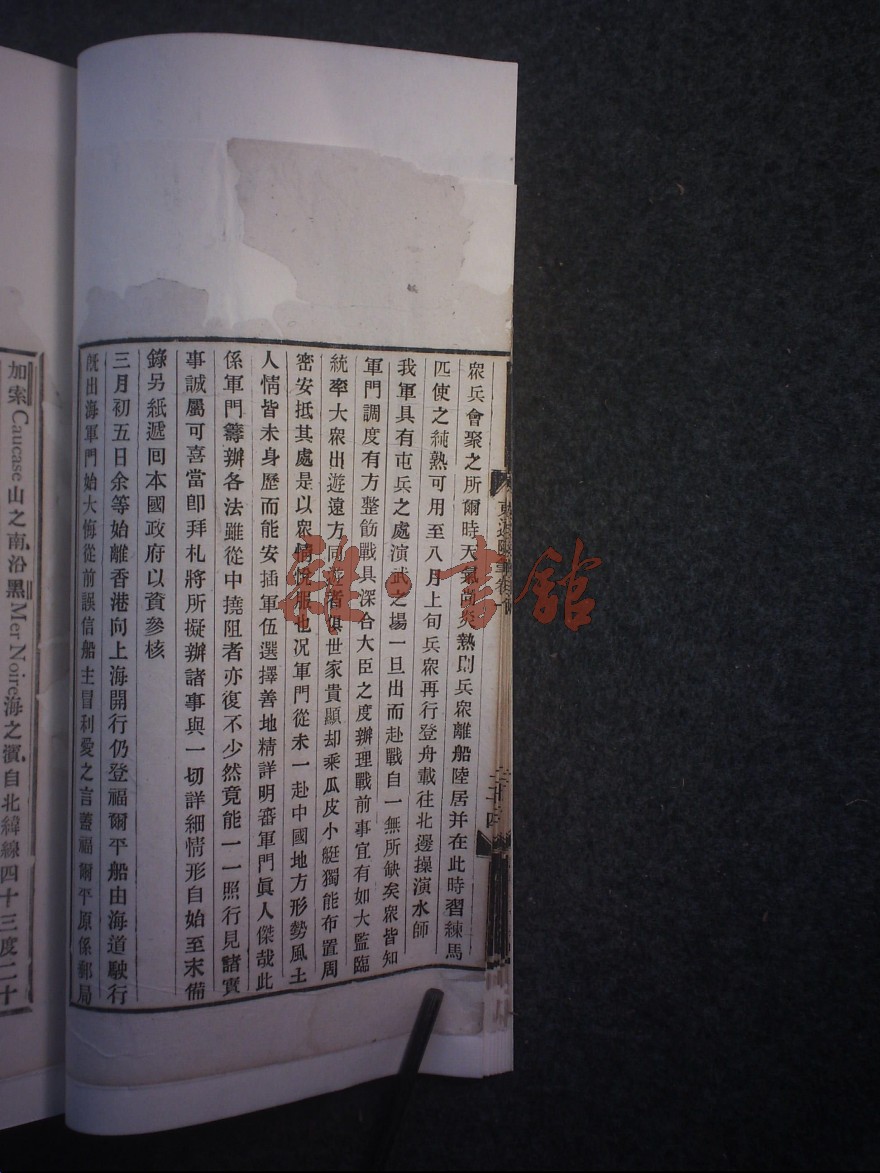 衆兵會聚之所爾時天氣尚炎熱則兵衆離船陸居并在此時習練馬
匹使之純熟可用至八月上旬兵衆再行登舟載往北邊操演水師
我軍具有屯兵之處演武之場一旦出而赴戰自一無所缺矣衆皆知
軍門調度有方整飭戰具深合大臣之度辦理戰前事宜有如大監臨
統率大衆出遊遠方同遊者俱世家貴顯却乘瓜皮小艇獨能布置周
密安抵其處是以衆情悅服也况軍門從未一赴中國地方形勢風土
人情皆未身歷而能安插軍伍選擇善地精詳明審軍門眞人傑哉此
係軍門籌辦各法雖從中撓阻者亦復不少然竟能一一照行見諸實
事誠屬可喜當卽拜札將所擬辦諸事與一切詳細情形自始至末備
錄另紙遞囘本國政府以資參核
三月初五日余等始離香港向上海開行仍登福爾平船由海道駛行
旣出海軍門始大悔從前誤信船主冒利愛之言蓋福爾平原係郵局
加索Caucase山之南沿黑Mer Noire海之濱自北緯線四十三度二十
雜·書館